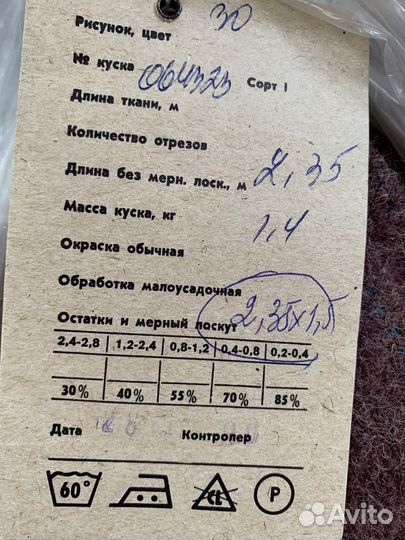 Рисунок, цвет 30
№ куска 064323 Сорт I
Длина ткани, м
Количество отрезов
Длина без мерн. лоск., м 2,35
Масса куска, кг 1,4
Окраска обычная
Обработка малоусадочная
Остатки и мерный лоскут 2,35х1,5
2,4-2,8 1,2-2,4 0,8-1,2 0,4-0,8 0,2-0,4
30% 40% 55% 70% 85%
Дата Контролер
60° CL P
Avito